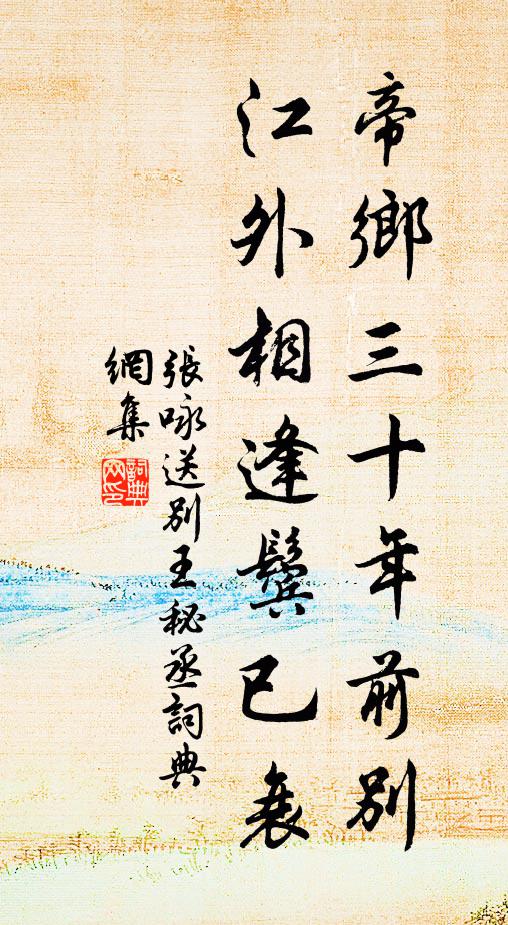 帝鄉三十年前別
江外相逢鬢已衰
張咏送别王秘丞詞典
網集
詞典網印